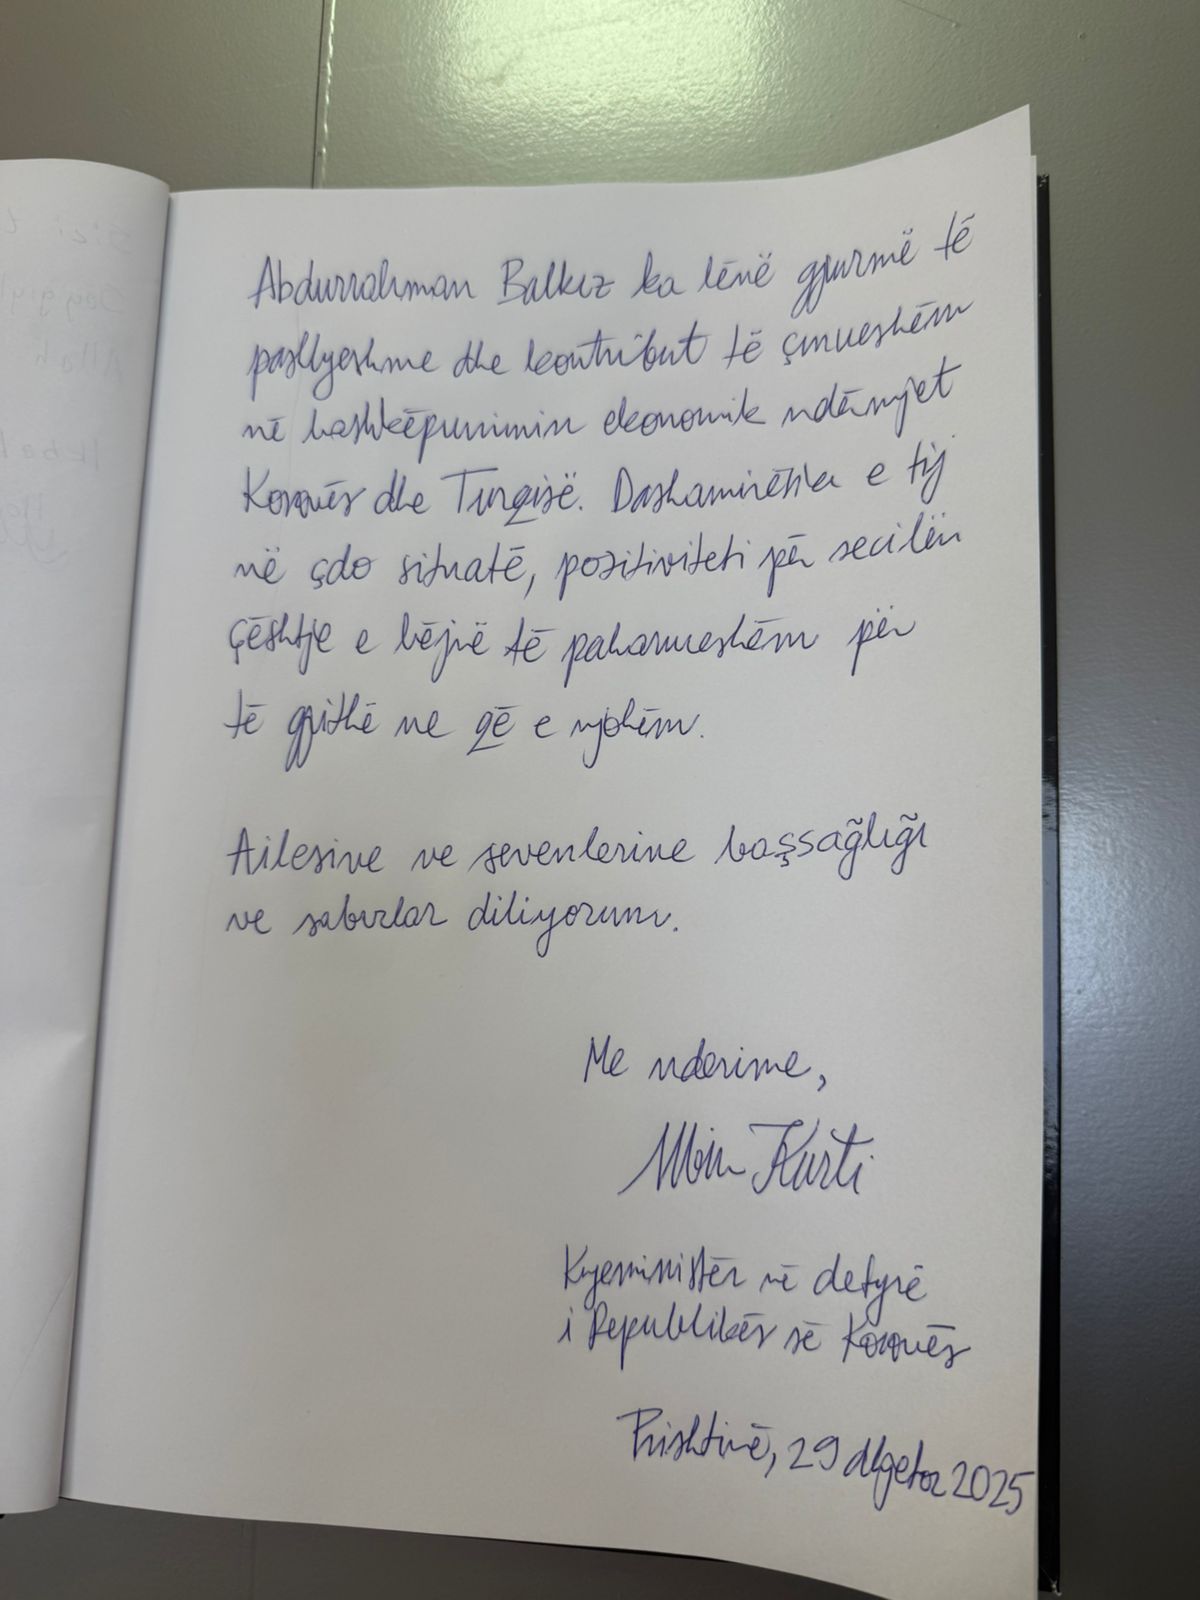 Abdurrahman Balkız ka lënë gjurmë të
pashlyeshme dhe kontribut të çmueshëm
në bashkëpunimin ekonomik ndërmjet
Kosovës dhe Turqisë. Dashamirësia e tij
në çdo situatë, pozitiviteti për secilën
çështje e bëjnë të paharrueshëm për
të gjithë ne që e njohëm.
Ailesine ve sevenlerine başsağlığı
ve sabırlar diliyorum.
Me nderime,
Albin Kurti
Kryeministër në detyrë
i Republikës së Kosovës
Prishtinë, 29 dhjetor 2025